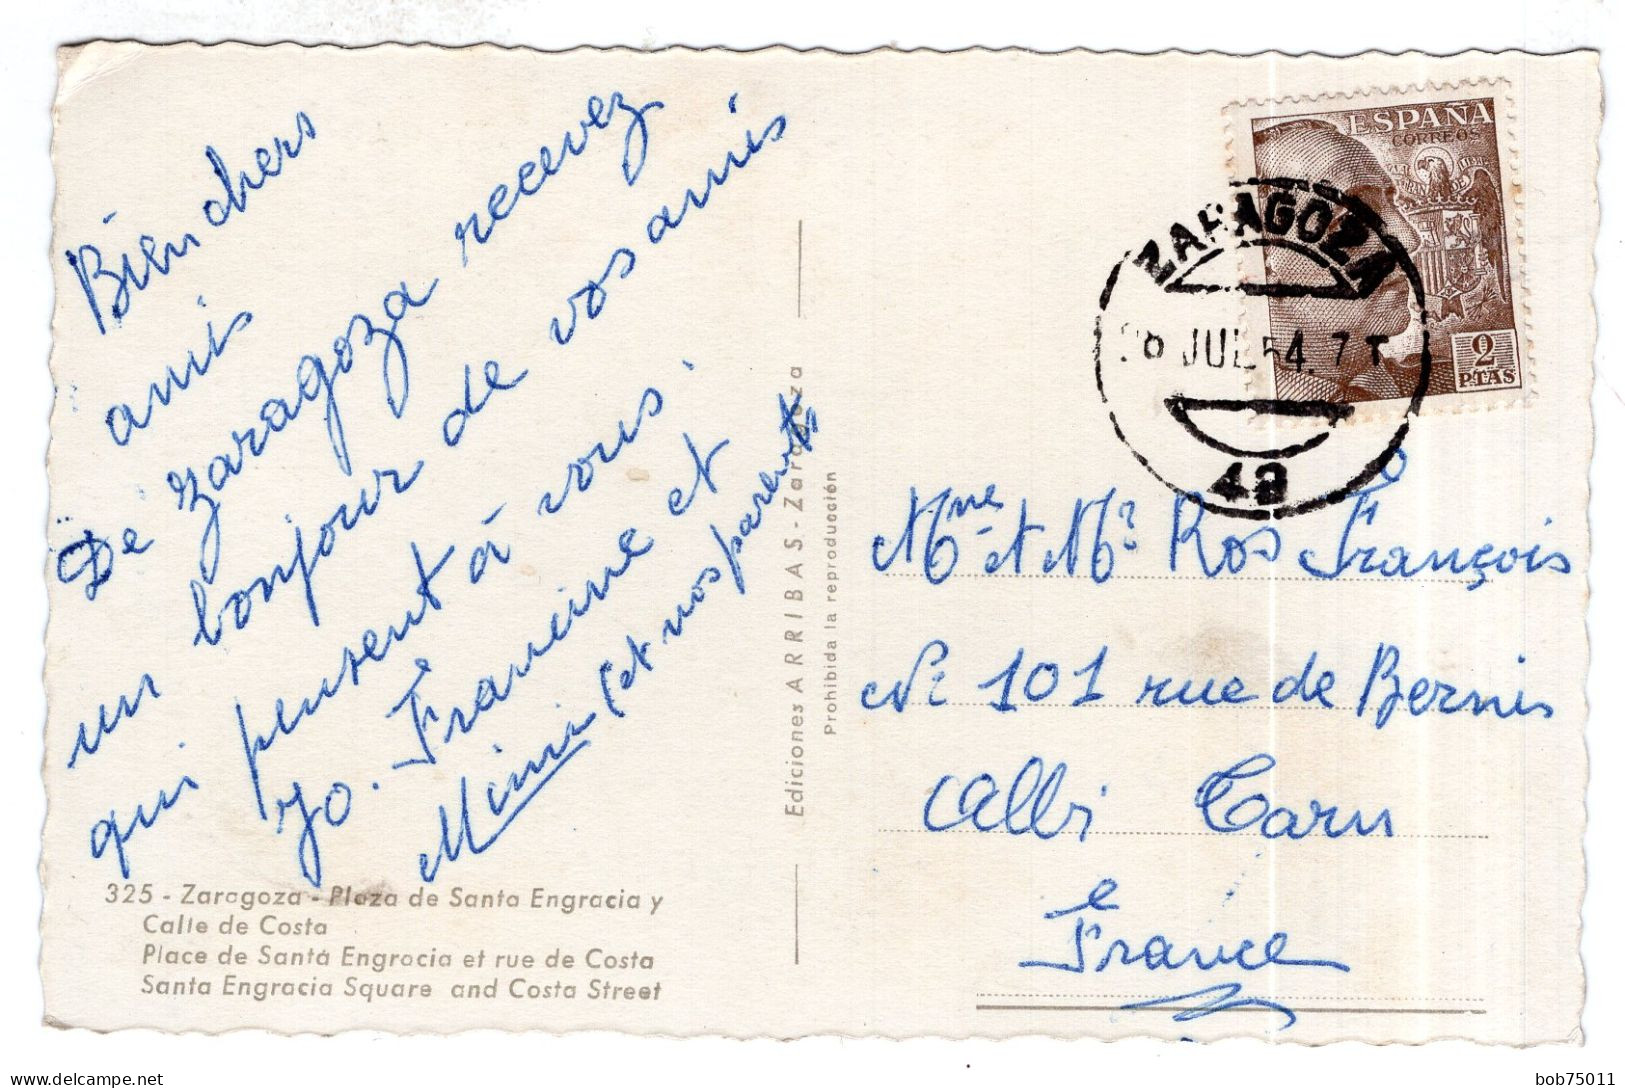 Bien chers
amis
De Zaragoza recevez
un bonjour de vos amis
qui pensent à vous.
Jo. Francine et
Mimi (et nos parents
325 - Zaragoza - Plaza de Santa Engracia y
Calle de Costa
Place de Santa Engracia et rue de Costa
Santa Engracia Square and Costa Street
Ediciones ARRIBAS - Zaragoza
Prohibida la reproducción
ESPAÑA
CORREOS
2
PTAS
ZARAGOZA
JUL 54. 7 T
Mme et Mr Ros François
N: 101 rue de Bernis
Albi Tarn
France
delcampe.net
bob75011